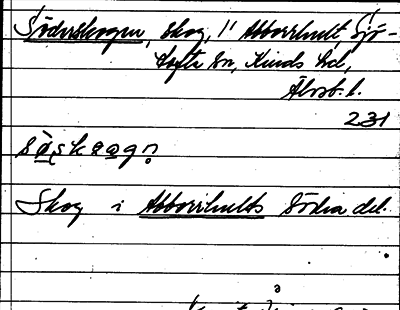 Söderskogen, skog, 1/1 Abborrhult Sjö-
tofta sn, Kinds hd,
Älvsb. l.
231
Skog i Abborrhults södra del.